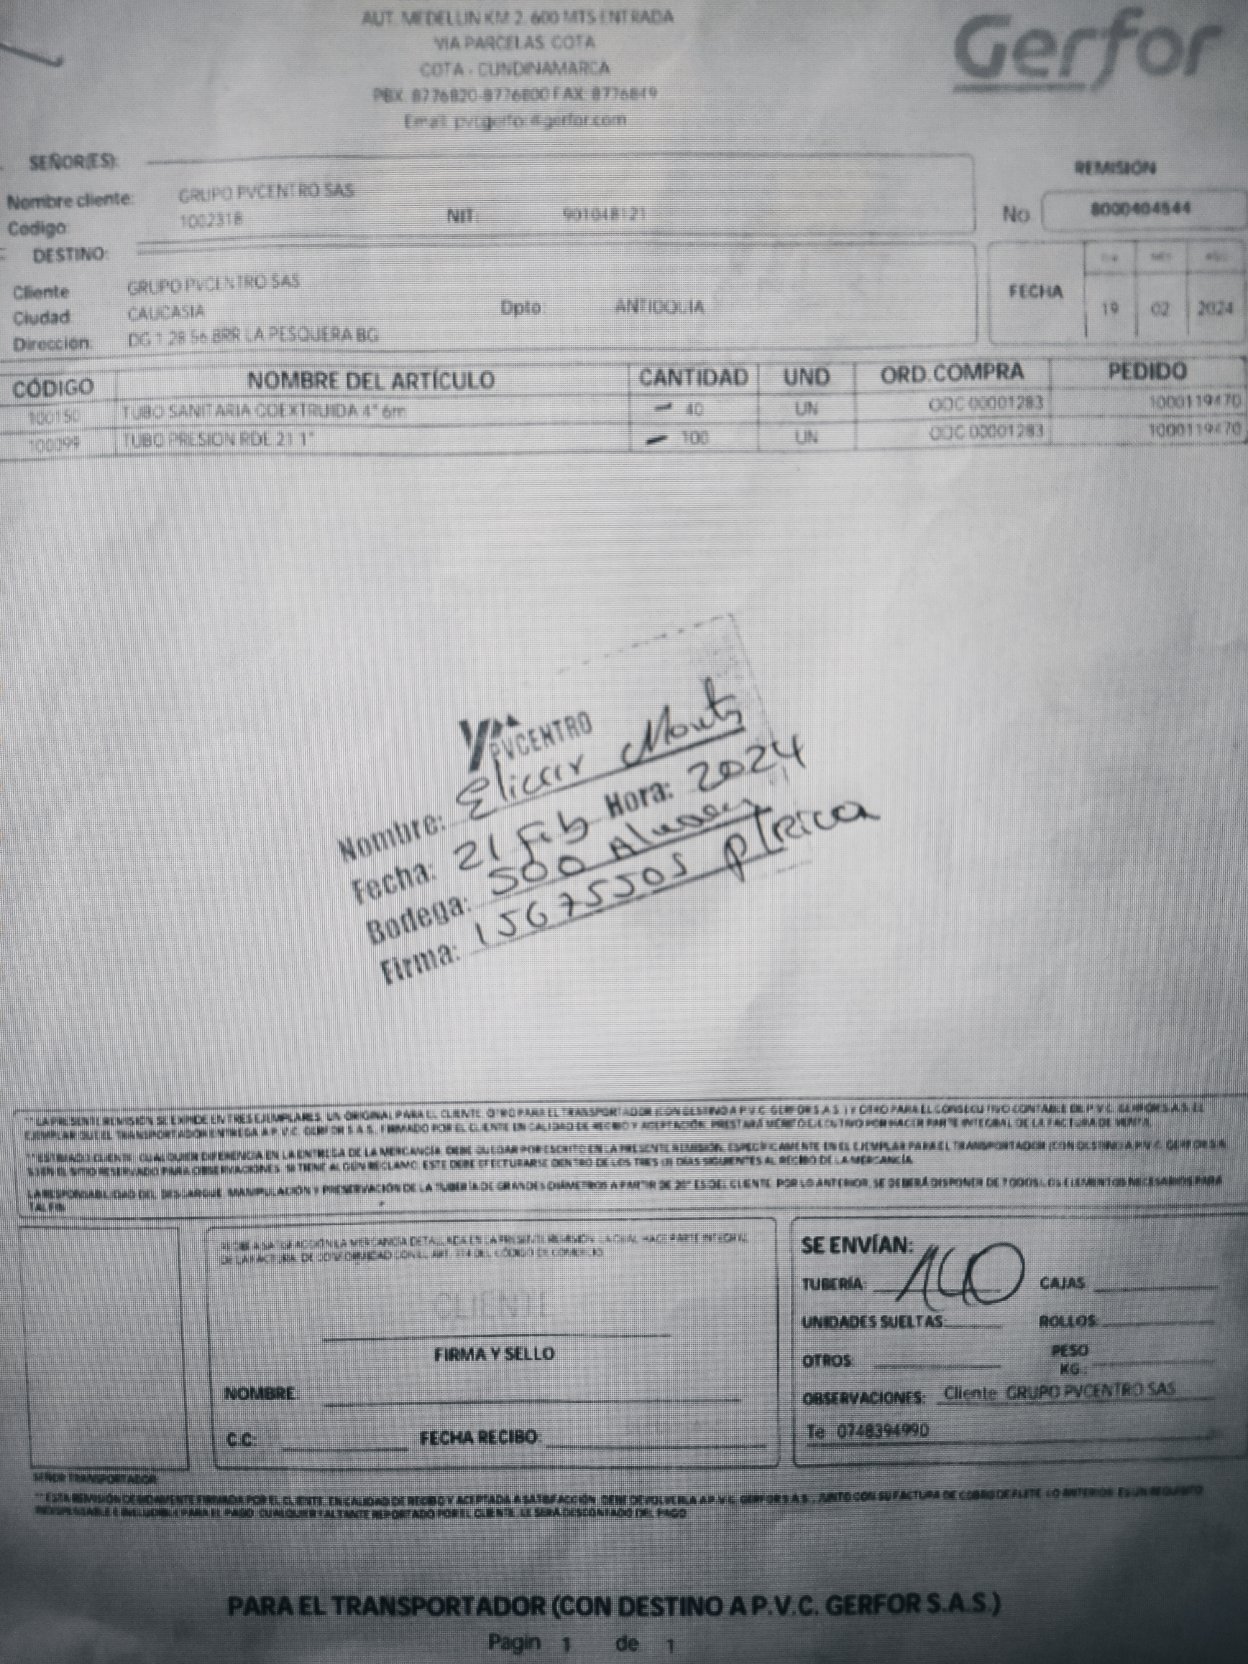 AUT. MEDELLIN KM 2. 600 MTS ENTRADA
VIA PARCELAS. COTA
COTA - CUNDINAMARCA
PBX. 8776820-8776800 FAX: 8776849
Email: pvcgerfor@gerfor.com
Gerfor
SEÑOR(ES):
Nombre cliente: GRUPO PVCENTRO SAS
Código: 1002318 NIT: 901048121
REMISIÓN
No 8000404544
DESTINO:
Cliente GRUPO PVCENTRO SAS
Ciudad: CAUCASIA Dpto: ANTIOQUIA
Dirección: DG 1 28 56 BRR LA PESQUERA BG
DIA MES AÑO
FECHA 19 02 2024
CÓDIGO NOMBRE DEL ARTÍCULO CANTIDAD UND ORD.COMPRA PEDIDO
100150 TUBO SANITARIA COEXTRUIDA 4" 6m 40 UN OOC 00001283 1000119470
100099 TUBO PRESION RDE 21 1" 100 UN OOC 00001283 1000119470
PVCENTRO
Nombre: Eliecer
Fecha: 21 Feb Hora: 2024
Bodega: 500
Firma: 15675505
**LA PRESENTE REMISIÓN SE EXPIDE EN TRES EJEMPLARES, UN ORIGINAL PARA EL CLIENTE, OTRO PARA EL TRANSPORTADOR (CON DESTINO A P.V.C. GERFOR S.A.S.) Y OTRO PARA EL CONSECUTIVO CONTABLE DE P.V.C. GERFOR S.A.S. EL
EJEMPLAR QUE EL TRANSPORTADOR ENTREGA A P.V.C. GERFOR S.A.S., FIRMADO POR EL CLIENTE EN CALIDAD DE RECIBO Y ACEPTACIÓN, PRESTARÁ MÉRITO EJECUTIVO POR HACER PARTE INTEGRAL DE LA FACTURA DE VENTA.
**ESTIMADO CLIENTE: CUALQUIER DIFERENCIA EN LA ENTREGA DE LA MERCANCÍA, DEBE QUEDAR POR ESCRITO EN LA PRESENTE REMISIÓN, ESPECÍFICAMENTE EN EL EJEMPLAR PARA EL TRANSPORTADOR (CON DESTINO A P.V.C. GERFOR S.A.
S.) EN EL SITIO RESERVADO PARA OBSERVACIONES. SI TIENE ALGÚN RECLAMO, ESTE DEBE EFECTURARSE DENTRO DE LOS TRES (3) DÍAS SIGUIENTES AL RECIBO DE LA MERCANCÍA.
LA RESPONSABILIDAD DEL DESCARGUE, MANIPULACIÓN Y PRESERVACIÓN DE LA TUBERÍA DE GRANDES DIÁMETROS A PARTIR DE 20" ES DEL CLIENTE. POR LO ANTERIOR, SE DEBERÁ DISPONER DE TODOS LOS ELEMENTOS NECESARIOS PARA
TAL FIN
RECIBÍ A SATISFACCIÓN LA MERCANCÍA DETALLADA EN LA PRESENTE REMISIÓN, LA CUAL HACE PARTE INTEGRAL
DE LA FACTURA, DE CONFORMIDAD CON EL ART. 774 DEL CÓDIGO DE COMERCIO
CLIENTE
FIRMA Y SELLO
NOMBRE:
C.C: FECHA RECIBO:
SE ENVÍAN:
TUBERÍA: 140 CAJAS
UNIDADES SUELTAS: ROLLOS:
OTROS: PESO KG.:
OBSERVACIONES: Cliente GRUPO PVCENTRO SAS
Te 0748394990
SEÑOR TRANSPORTADOR:
**ESTA REMISIÓN DEBIDAMENTE FIRMADA POR EL CLIENTE, EN CALIDAD DE RECIBO Y ACEPTADA A SATISFACCIÓN, DEBE DEVOLVERLA A P.V.C. GERFOR S.A.S., JUNTO CON SU FACTURA DE COBRO DE FLETE. LO ANTERIOR, ES UN REQUISITO
INDISPENSABLE E INELUDIBLE PARA EL PAGO. CUALQUIER FALTANTE REPORTADO POR EL CLIENTE, LE SERÁ DESCONTADO DEL PAGO
PARA EL TRANSPORTADOR (CON DESTINO A P.V.C. GERFOR S.A.S.)
Pagin 1 de 1